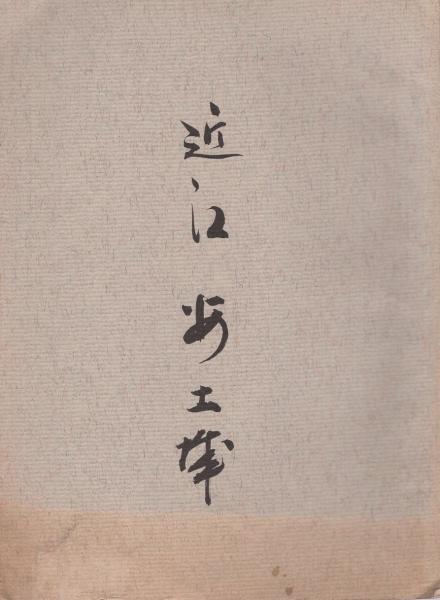 近江 安土城